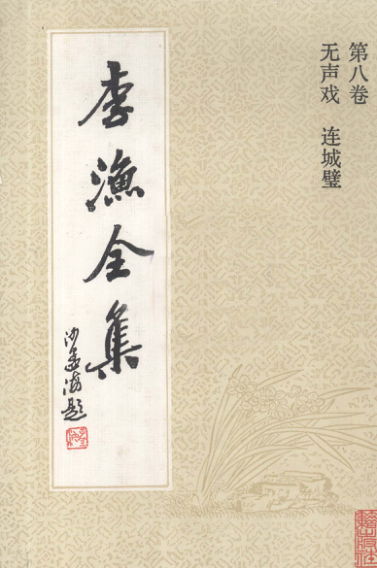 第八卷
无声戏 连城璧
李渔全集
沙孟海题